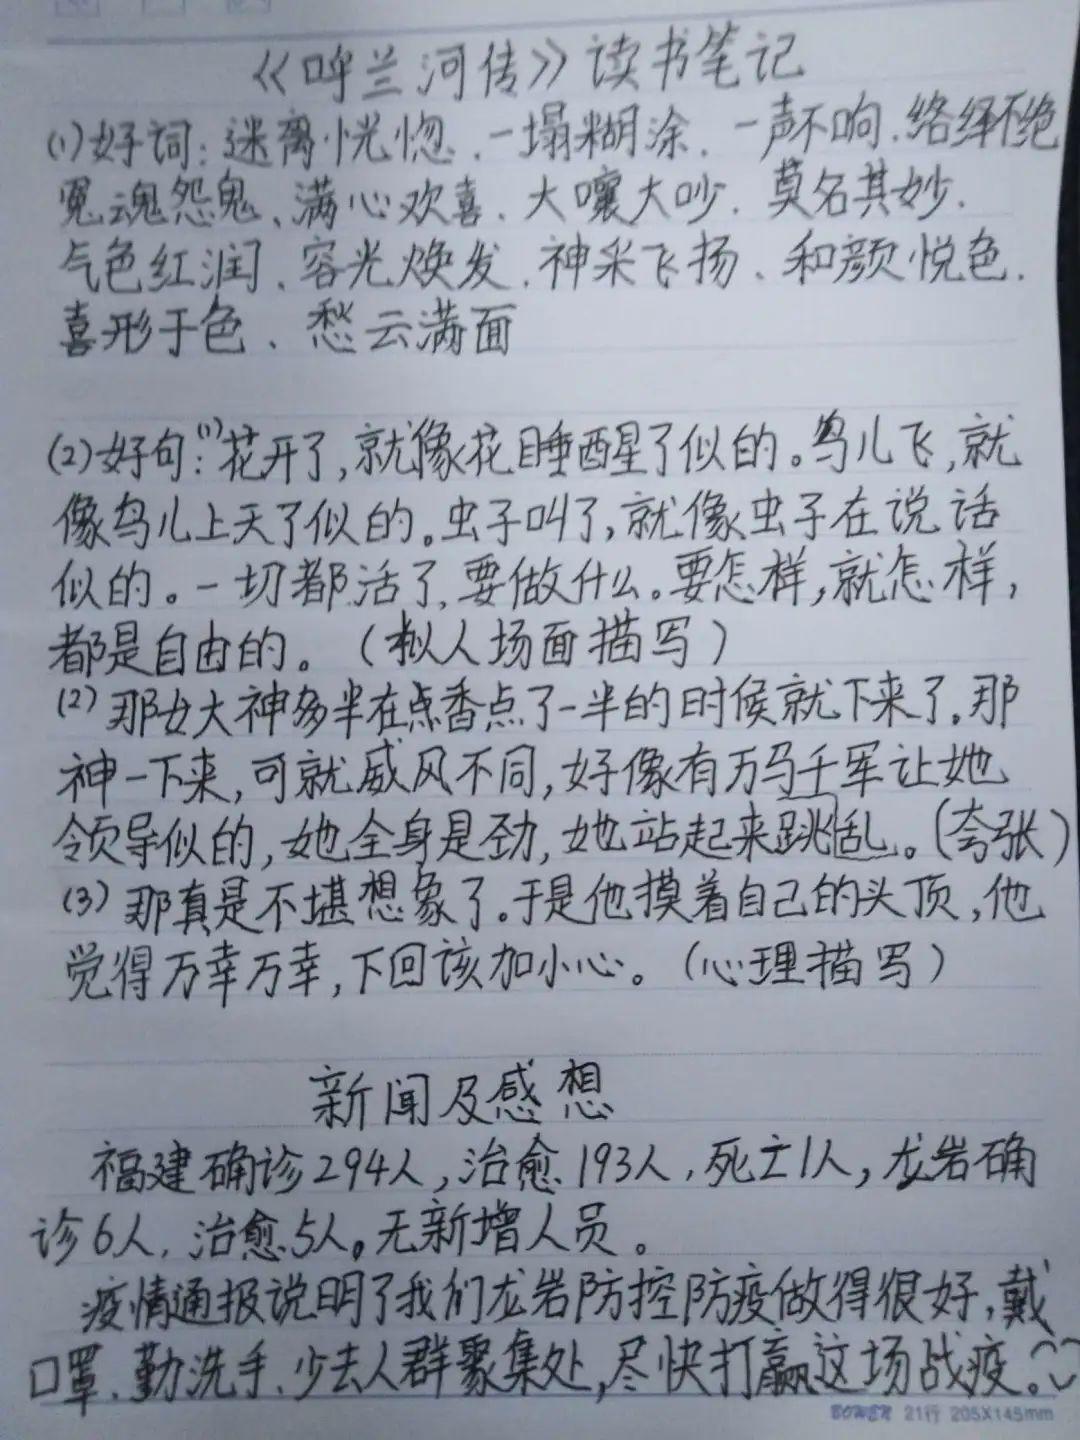 《呼兰河传》读书笔记
(1)好词:迷离恍惚、一塌糊涂、一声不响、络绎不绝
冤魂怨鬼、满心欢喜、大嚷大吵、莫名其妙、
气色红润、容光焕发、神采飞扬、和颜悦色、
喜形于色、愁云满面
(2)好句:(1)花开了,就像花睡醒了似的。鸟儿飞,就
像鸟儿上天了似的。虫子叫了,就像虫子在说话
似的。一切都活了,要做什么。要怎样,就怎样,
都是自由的。(拟人场面描写)
(2)那女大神多半在点香点了一半的时候就下来了。那
神一下来,可就威风不同,好像有万马千军让她
领导似的,她全身是劲,她站起来跳乱。(夸张)
(3)那真是不堪想象了。于是他摸着自己的头顶,他
觉得万幸万幸,下回该加小心。(心理描写)
新闻及感想
福建确诊294人,治愈193人,死亡1人,龙岩确
诊6人,治愈5人。无新增人员。
疫情通报说明了我们龙岩防控防疫做得很好,戴
口罩、勤洗手、少去人群聚集处,尽快打赢这场战疫。
BOWEN 21行 205X145mm